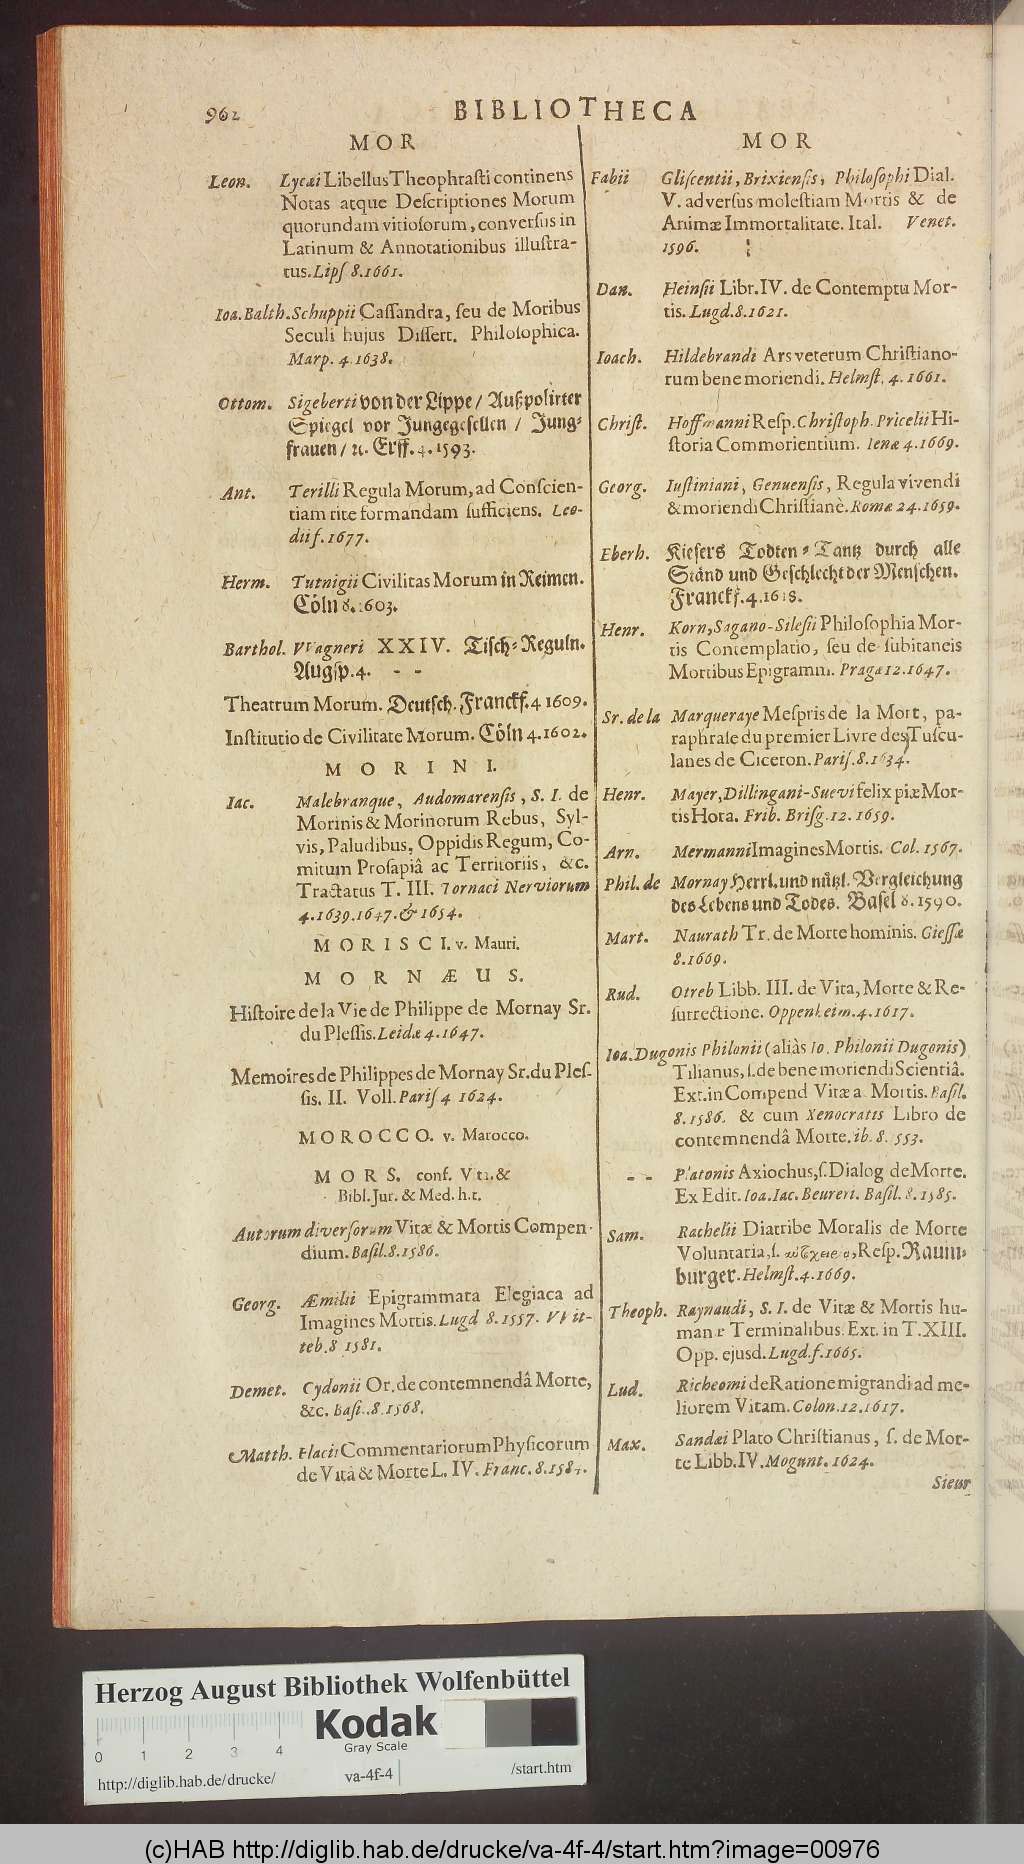 962 BIBLIOTHECA
MOR
Leon. Lycæi Libellus Theophrasti continens
Notas atque Descriptiones Morum
quorundam vitiosorum, conversus in
Latinum & Annotationibus illustra-
tus. Lips 8.1661.
Ioa. Balth. Schuppii Cassandra, seu de Moribus
Seculi hujus Dissert. Philosophica.
Marp. 4.1638.
Ottom. Sigeberti von der Lippe / Außpolirter
Spiegel vor Jungegesellen / Jung-
frauen / ꝛc. Erff. 4. 1593.
Ant. Terilli Regula Morum, ad Conscien-
tiam rite formandam sufficiens. Leo-
dii f. 1677.
Herm. Tutnigii Civilitas Morum in Reimen.
Cöln 8. 1603.
Barthol. VVagneri XXIV. Tisch-Reguln.
Augsp. 4. - -
Theatrum Morum. Deutsch. Franckf. 4 1609.
Institutio de Civilitate Morum. Cöln 4.1602.
MORINI.
Iac. Malebranque, Audomarensis, S. I. de
Morinis & Morinorum Rebus, Syl-
vis, Paludibus, Oppidis Regum, Co-
mitum Prosapiâ ac Territoriis, &c.
Tractatus T. III. Tornaci Nerviorum
4.1639.1647. & 1654.
MORISCI. v. Mauri.
MORNÆUS.
Histoire de la Vie de Philippe de Mornay Sr.
du Plessis. Leidæ 4.1647.
Memoires de Philippes de Mornay Sr. du Ples-
sis. II. Voll. Paris 4 1624.
MOROCCO. v. Marocco.
MORS. conf. Vita &
Bibl. Jur. & Med. h.t.
Autorum diversorum Vitæ & Mortis Compen-
dium. Basil. 8.1586.
Georg. Æmilii Epigrammata Elegiaca ad
Imagines Mortis. Lugd 8.1557. VVit-
teb. 8 1581.
Demet. Cydonii Or. de contemnendâ Morte,
&c. Basil. 8.1568.
Matth. Flacii Commentariorum Physicorum
de Vitâ & Morte L. IV. Franc. 8.158
MOR
Fabii Gliscentii, Brixiensis, Philosophi Dial.
V. adversus molestiam Mortis & de
Animæ Immortalitate. Ital. Venet.
1596.
Dan. Heinsii Libr. IV. de Contemptu Mor-
tis. Lugd. 8.1621.
Ioach. Hildebrandi Ars veterum Christiano-
rum bene moriendi. Helmst. 4. 1661.
Christ. Hoffmanni Resp. Christoph. Pricelii Hi-
storia Commorientium. Ienæ 4.1669.
Georg. Iustiniani, Genuensis, Regula vivendi
& moriendi Christianè. Romæ 24.1659.
Eberh. Kiesers Todten-Tantz durch alle
Ständ und Geschlecht der Menschen.
Franckf. 4.1618.
Henr. Korn, Sagano-Silesii Philosophia Mor-
tis Contemplatio, seu de subitaneis
Mortibus Epigramm. Pragæ 12.1647.
Sr. de la Marqueraye Mespris de la Mort, pa-
raphrase du premier Livre des Tuscu-
lanes de Ciceron. Paris. 8.1634.
Henr. Mayer, Dillingani-Suevi felix piæ Mor-
tis Hora. Frib. Brisg. 12. 1659.
Arn. Mermanni Imagines Mortis. Col. 1567.
Phil. de Mornay Herrl. und nützl. Vergleichung
des Lebens und Todes. Basel 8.1590.
Mart. Naurath Tr. de Morte hominis. Giessæ
8.1669.
Rud. Otreb Libb. III. de Vita, Morte & Re-
surrectione. Oppenheim. 4.1617.
Ioa. Dugonis Philonii (aliàs Io. Philonii Dugonis)
Tilianus, s. de bene moriendi Scientiâ.
Ext. in Compend Vitæ a Mortis. Basil.
8.1586. & cum Xenocratis Libro de
contemnendâ Morte. ib. 8. 553.
- - Platonis Axiochus, s. Dialog de Morte.
Ex Edit. Ioa. Iac. Beureri. Basil. 8.1585.
Sam. Rachelii Diatribe Moralis de Morte
Voluntaria, s. Resp. Raum-
burger. Helmst. 4.1669.
Theoph. Raynaudi, S. I. de Vitæ & Mortis hu-
manæ Terminalibus. Ext. in T. XIII.
Opp. ejusd. Lugd. f. 1665.
Lud. Richeomi de Ratione migrandi ad me-
liorem Vitam. Colon. 12.1617.
Max. Sandæi Plato Christianus, s. de Mor-
te Libb. IV. Mogunt. 1624.
Sieur
Herzog August Bibliothek Wolfenbüttel
Kodak
Gray Scale
0 1 2 3 4
http://diglib.hab.de/drucke/ va-4f-4 /start.htm
(c)HAB http://diglib.hab.de/drucke/va-4f-4/start.htm?image=00976